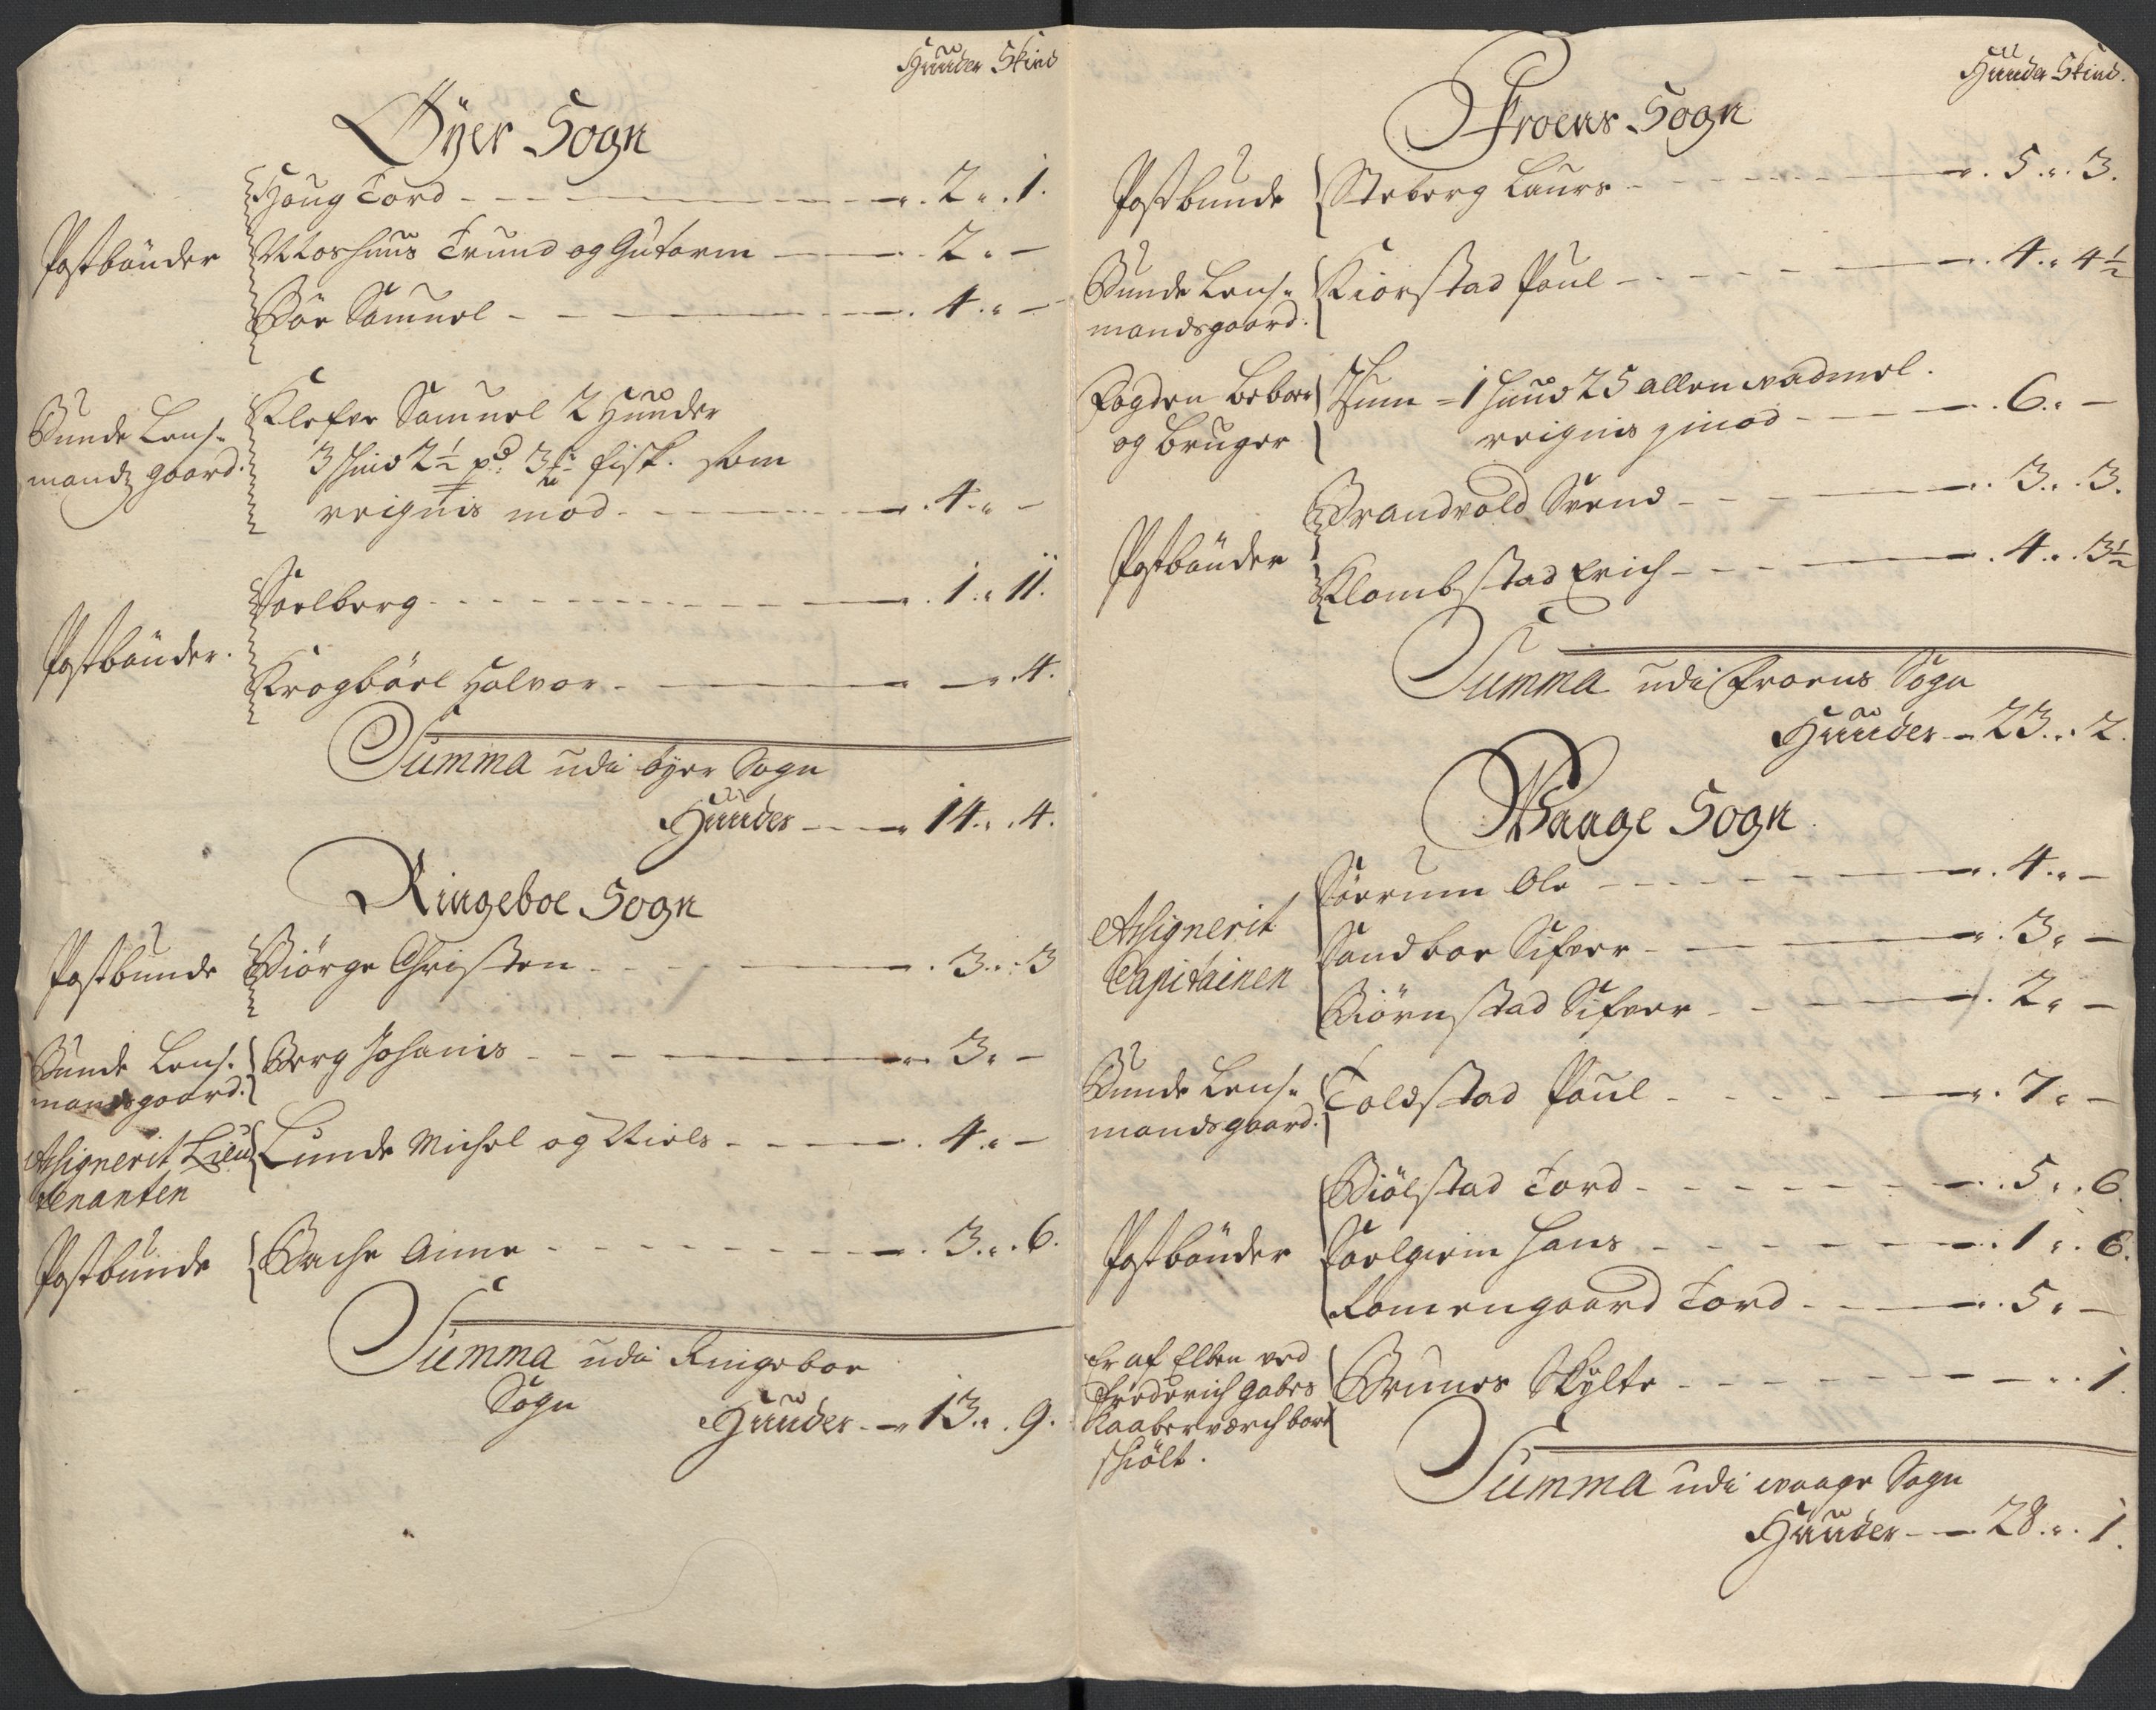 Huuder Skind
Øyer Sogn
Houg Tord - - - 2 „ 1.
Postbönder
Moshuus Trund og Gutorm - - - 2 „ -
Böe Samuel - - - 4 „ -
Bunde Lens-
mandz gaard.
Klefve Samuel 2 Huuder
3 skind 2½ pd: 3 fisk. som
reignis mod - - - 4 „ -
Postbönder.
Sorlberg - - - 1 „ 11.
Krogböel Halvor - - - „ 4.
Summa udi Öyer Sogn
Huuder - - 14 „ 4.
Ringeboe Sogn
Postbunde Biörge Christen - - - 3 „ 3
Bunde Lens-
mandsgaard.
Berg Johanis - - - 3 „ -
Assignerit Lieu-
tenanten
Lunde Michel og Niels - - - 4 „ -
Postbunde Bache Anne - - - 3 „ 6.
Summa udi Ringeboe
Sogn
Huuder - 13 „ 9.
Huuder Skind.
Froens Sogn
Postbunde Steberg Laurs - - - 5 „ 3.
Bunde Lens-
mandsgaard.
Kiorstad Poul - - - 4 „ 4½
Fogden beboer
og bruger
Huun = 1 huud 25 allen vadmel.
reignis imod - - - 6 „ -
Postbönder
Brandvold Svend - - - 3 „ 3.
Klombstad Erich - - - 4 „ 3½
Summa udi Froens Sogn
Huuder - 23 „ 2.
Waage Sogn
Assignerit
Capitainen
Sörum Ole - - - 4 „ -
Sandboe Sifver - - - 3 „ -
Biörnstad Sifver - - - 2 „ -
Bunde Lens-
mandsgaard.
Toldstad Poul - - - 7 „ -
Postbönder
Biölstad Tord - - - 5 „ 6.
Sorlgiem Hans - - - 1 „ 6.
Romengaard Tord - - - 5 „ -
Er af Elben ved
Friderich Gabes
Kaaberværch bort
skiölt.
Brunes Skylte - - - 1.
Summa udi waage Sogn
Huuder - - 28 „ 1.